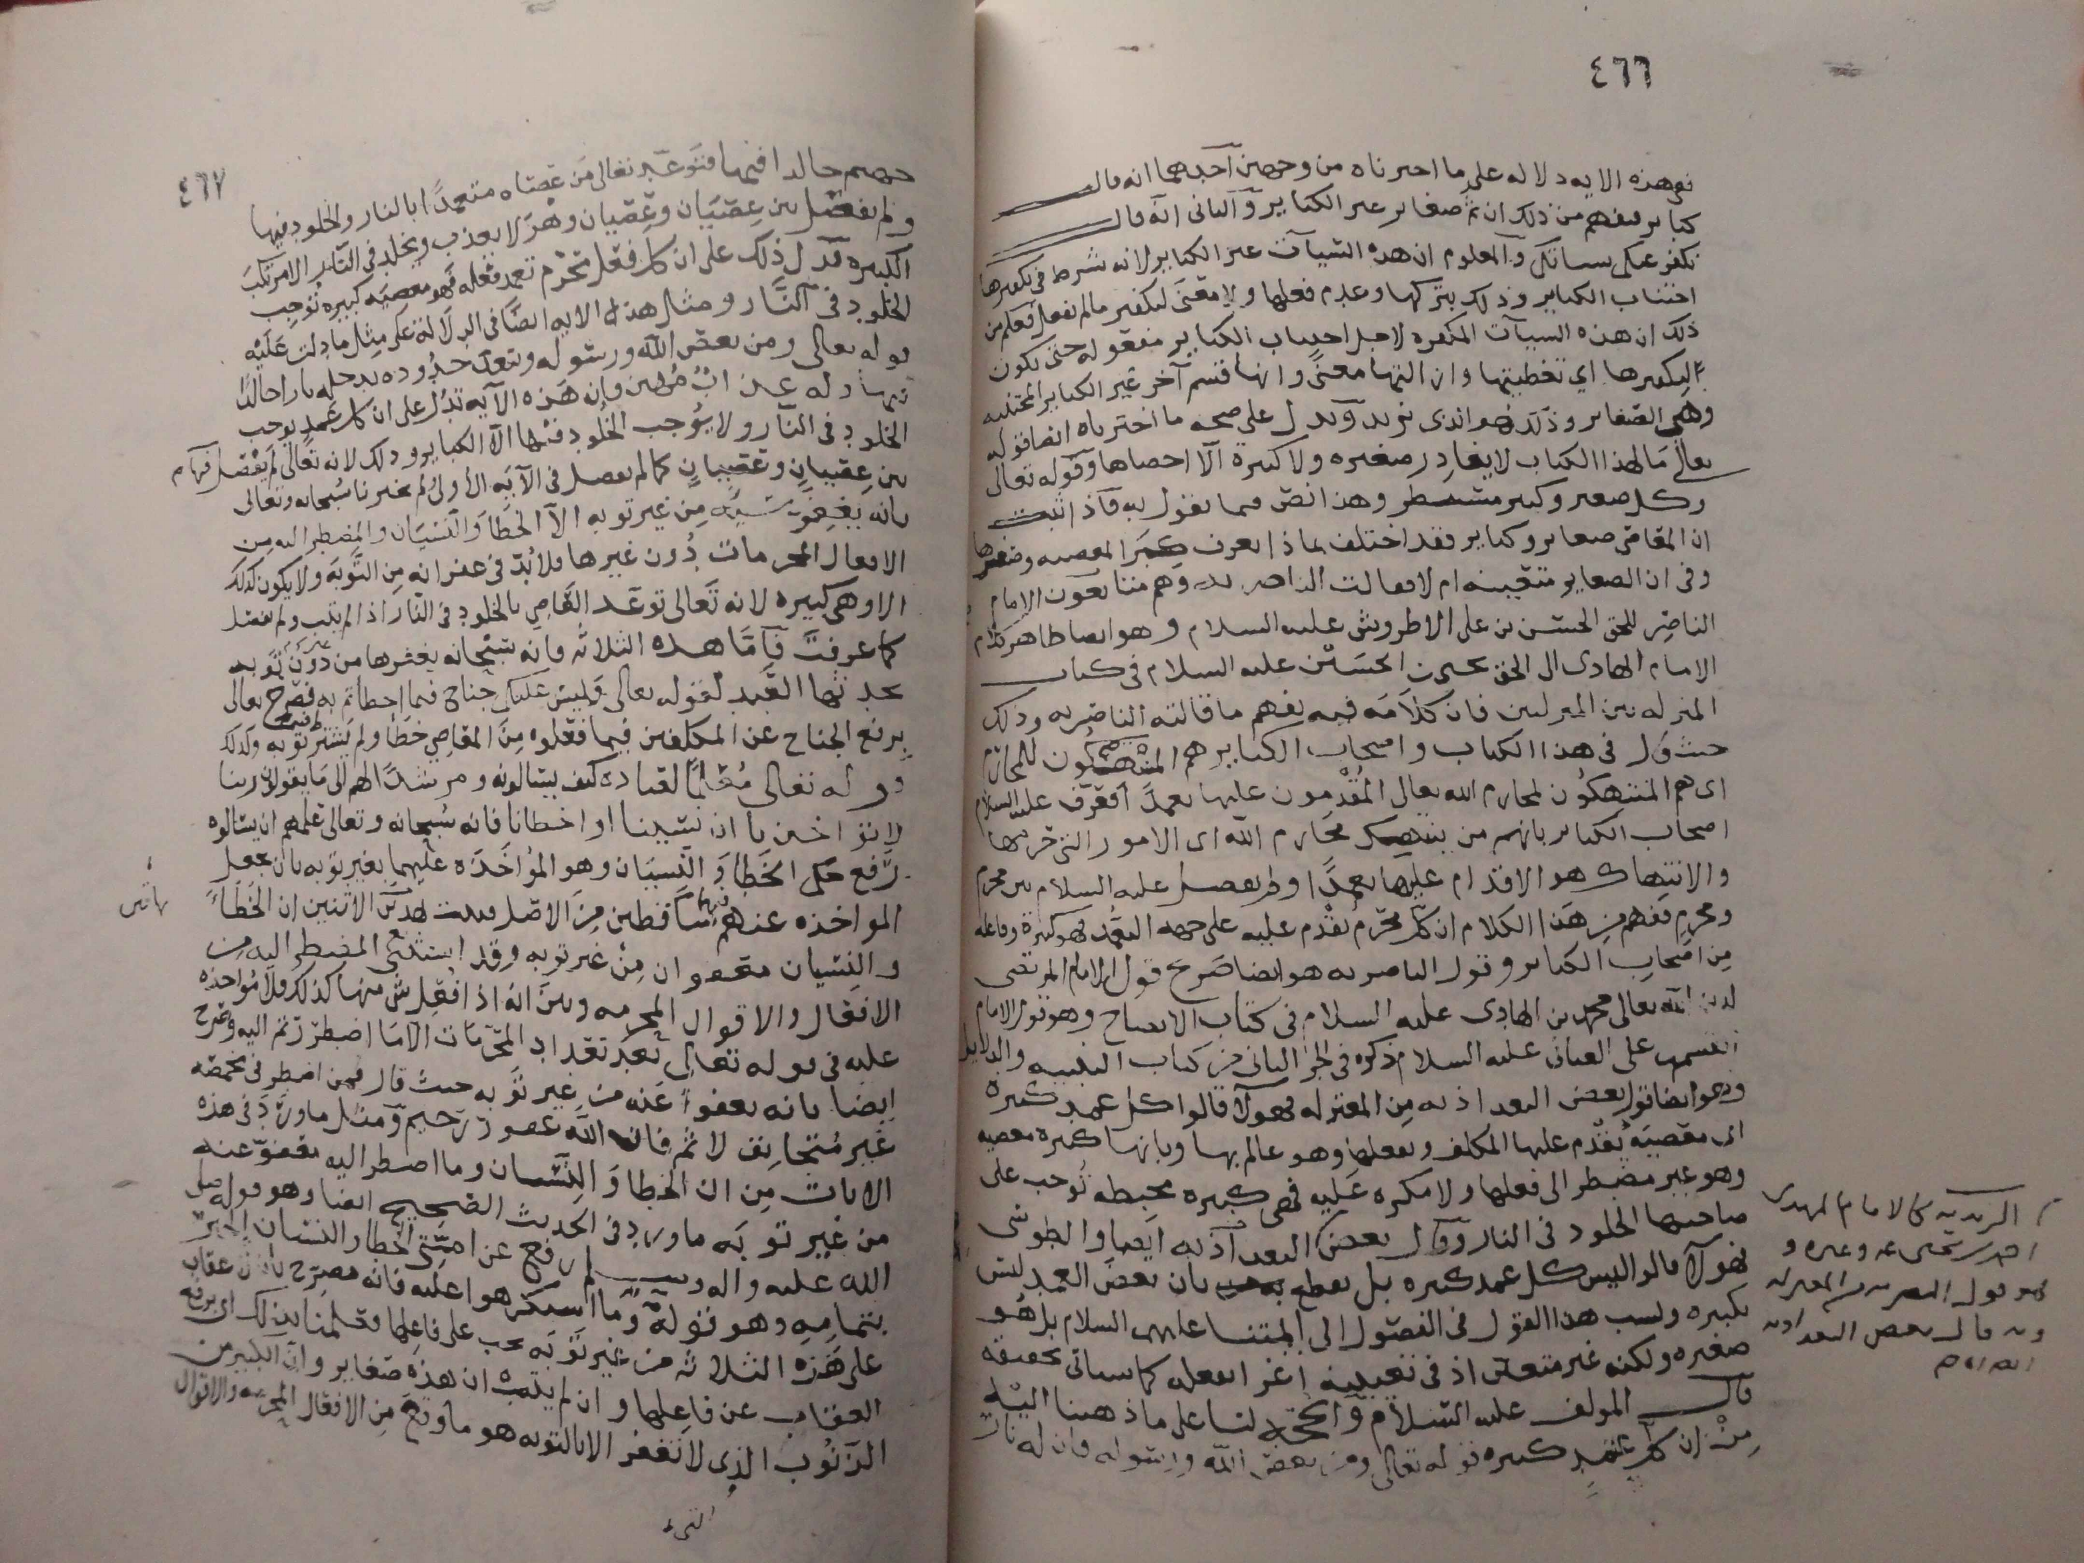 ٤٦٦
في هذه الايه دلاله على ما اخترناه من وجهين احدهما انه قال
كباير فيفهم من ذلك ان ثم صغاير غير الكباير والثاني انه قال
نكفر عنكم سيئاتكم والمعلوم ان هذه السيات غير الكباير لانه شرط في تكفيرها
اجتناب الكباير وذلك بتركها وعدم فعلها ولا معنى لتكفير مالم يفعل فعلم من
ذلك ان هذه السيآت المكفره لاجل اجتناب الكباير مفعوله حتى يكون
لتكفيرها اي تغطيتها وازالتها معنىً وانها قسم آخر غير الكباير المجتنبه
وهي الصغاير وذلك هو الذي نريد ويدل على صحه ما اخترناه ايضا قوله
تعالى مَا لهذا الكتاب لا يغادر صغيره ولا كبيرة الا احصاها وقوله تعالى
وكل صغير وكبير مستطر وهذا نصّ فيما نقول به فاذا ثبت
ان المعاصي صغاير وكباير فقد اختلف بماذا يعرف كبَر المعصيه وصغرها
وفي ان الصغاير متعينه ام لا فقالت الناصريه وهم متابعون الامام
الناصر للحق الحسن بن علي الاطروش عليه السلام وهو ايضا ظاهر كلام
الامام الهادي الى الحق يحيى بن الحسَين عليه السلام في كتاب
المنزله بين المنزلتين فان كلامَه فيه يفهم ما قالته الناصريه وذلك
حيث قال في هذا الكتاب واصحاب الكباير هم المنتهكون للمحارم
اي هم المنتهكُون لمحارم الله تعالى المُقْدِمون عليها تعمدًا فعرّف عليه السلام
اصحاب الكباير بانهم من ينتهك محارم الله اى الامور التي حرمها
والانتهاك هو الاقدام عليها تعمدًا ولم يفصل عليه السلام بين محرم
ومحرم ففهم من هذا الكلام ان كل محرّم يُقْدم عليه على جهه التعمّد فهو كبيرة وفاعله
مِن اصحاب الكباير وقول الناصريه هو ايضا صَريح قول الامام المرتضى
لدين الله تعالى محمد بن الهادي عليه السلام في كتاب الايضاح وهو قول الامام
القسم بن علي العياني عليه السلام ذكره في الجز الثاني من كتاب التنبيه والدلايل
وهو ايضا قول بعض البغداذيه مِن المعتزله فهولآ قالوا كل عمد كبيره
اى معصيَة يُقْدم عليها المكلف ويفعلها وهو عالم بها وبانها كبيره معصيه
وهو غير مضطر الى فعلها ولا مكره عَليه فهي كبيره محبطه تُوجب على
صاحبها الخلود في النار وقال بعض البغداذيه ايَضا والطوسي
فهولآ قالوا ليس كل عمد كبيره بل نقطع بان بعضَ العمد ليس
بكبيره ونسب هذا القول في الفصول الى ائمتنا عليهم السلام بل هُو
صغيره ولكنه غير متعين اذ في تعيينه اغرا بفعله كما سياتي تحقيقه
قال المولف عليه السّلام والحجّه لنا على ما ذهبنا اليه
مِنْ ان كل عمْدٍ كبيره قوله تعالى ومن يعص الله ورسوله فان له نار
الزيديه كالامام المهدي
احمد بن يحيى عم وغيره و
هو قول البصريه من المعتزله
وبه قال بعض البغداديه
٤٦٧
جهنم خالدا فيها فتوعّد تعالى مَن عَصَاه متعمدًا بالنار والخلود فيها
ولم يفصّل بين عِصْيَان وعِصْيان وهوَ لا يعذب ويخلد في النّار الا مرتكبَ
الكبيره فدَلّ ذلك على ان كل فعْل محرّم تعمد فعْله فهو معصيَه كبيره تُوجب
الخلود في النَّار ومثل هذه الايه ايضًا في الدلالة على مِثل ما دلت عَليْه
قوله تعالى ومن يعصِ الله ورسُوله ويتعدّ حُدُوده يدخله نارا خالدًا
فيها وله عذابٌ مُهين فان هَذه الآيه تدُل على ان كل عَمدٍ يوجب
الخلود في النآر ولا يُوجب الخُلود فيْها الا الكبايرُ وذلك لانه تعالى لم يفْصل فيها
بين عِصيانٍ وعِصِيانٍ كما لم يفصل في الآيَه الأولى ولم يخبرنا سُبحانه وتعالى
بانه يغْفِر سَيئه مِن غير توبه الا الخطا والنسْيَان والمضطر اليه مِن
الافعال المحرمات دُون غيرها فلا بُدّ في غفرانه مِن التَّوبَه ولا يكون كذلك
الا وهي كبيره لانه تَعالى توعّد العَاصِي بالخلود في النّار اذا لم يتب ولم يفصّل
كما عرفتَ فآمَّا هذه الثلاثه فانه سُبْحانه يغفرها من دُوْن تَوبه
يحدثها العَبد لقوله تعالى وليسَ عليكم جُناح فيما اخطاتم به فصّرح تعالى
برفع الجناح عن المكلفين فيما فعَلوه مِنَ المعَاصِي خطًا ولم يشترط فيه تَوبه وكذلك
قوله تعالى مُعَلمًا لعباده كيف يسَالونه ومرشدًا لهم الى مَا يقولون ربنا
لا تؤاخذنا ان نسينا او اخطانا فانه سُبحانه وتعالى علمهم ان يسَالوه
رَفع حكم الخَطا وَ النسيَان وهو المؤاخَذه عليهما بغير توبه بان يجعل
المواخذه عنهما ساقطين مِنَ الاصْل فبيّنت هَذه الاثنين ان الخَطَاءَ
والنِسيان معَفوان مِنْ غير توبه وقد استثنى المضطر اليه مِن
الافعَال والاقوال المحرمه وبيّنَ انه اذا فُعِل شي منها كذلك فلا مُؤاخذه
عليه في قوله تعَالى بَعد تعداد المحرّمَات الا مَا اضطررتم اليه وصَرح
ايضا بانه يعفوا عَنه مِن غير تَوبه حيث قال فمن اضطر في مخمصه
غَير مُتجانِف لاثم فان الله غفور رَحيم ومثل ما ورَدَ في هذه
الايات مِن ان الخطا وَ النِسْيان وما اضطر اليه معْفوّ عنه
من غير توبَه ما ورد في الحديث الصّحيح ايضا وهو قوله صلى
الله عليه واله وسلم رفع عن امتي الخطا والنسيان الخبر
بتمامِهِ وهو قوله وما استكرهوا عليه فانه مصرّح بان لا عقاب
على هَذه الثلاثه من غير تَوبَه يجب على فاعِلها فعَلمنا بذلك اي برفع
العقاب عن فاعِلها وان لم يتب ان هذه صَغاير وانّ الكبير من
الذنُوب الذي لا تغفر الا بالتوبه هو ما وقعَ مِن الافعَال المحرمه والاقوال